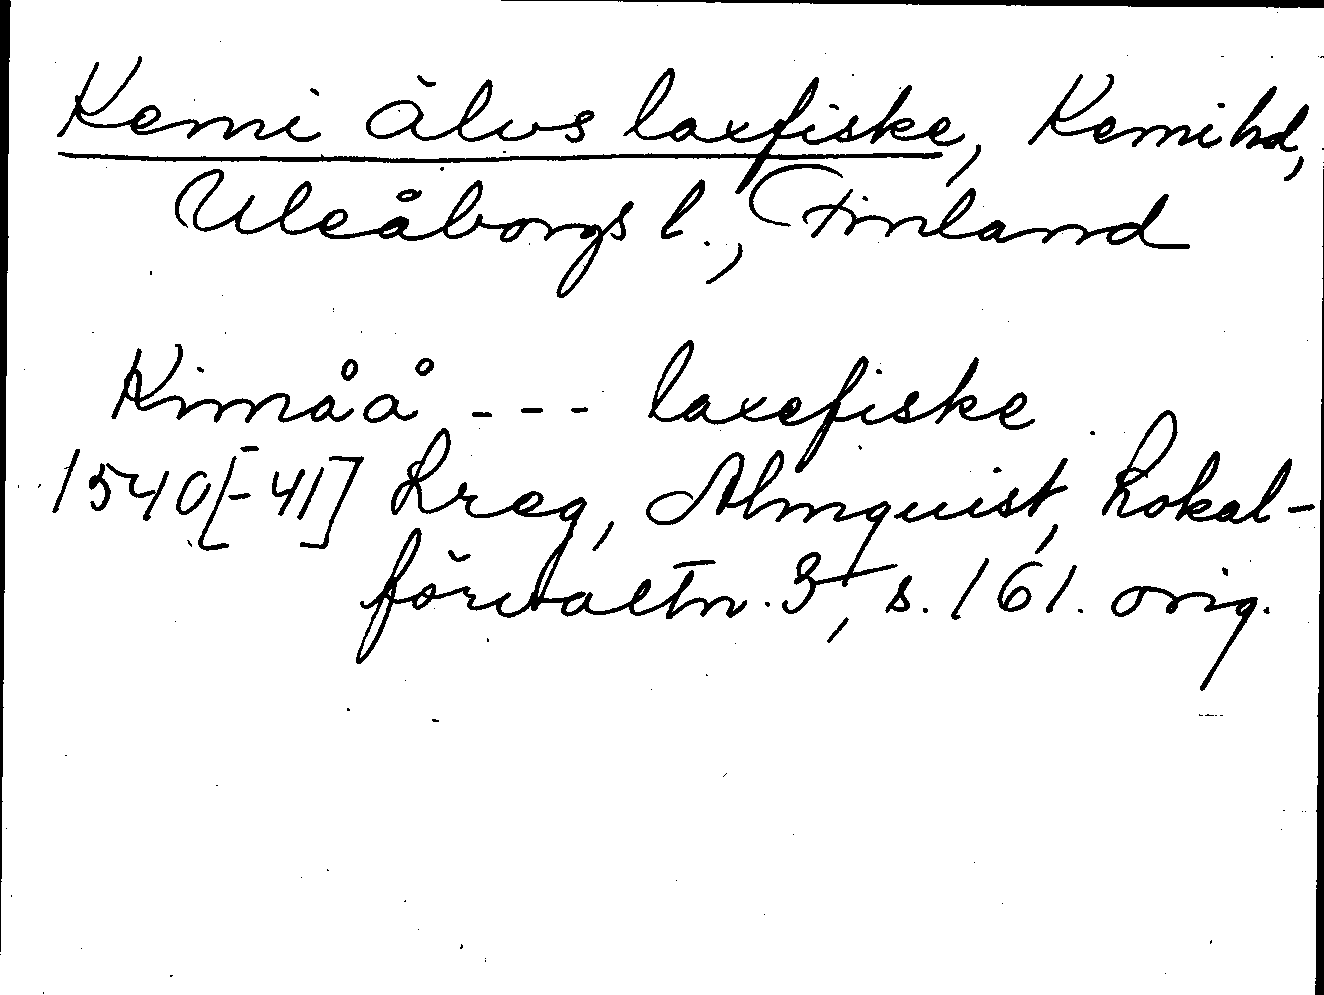 Kemi älvs laxfiske, Kemi hd,
Uleåborgs l., Finland
Kimåå --- laxefiske
1540[-41] Lreg, Almquist, Lokal-
förvaltn. 3, s. 161. orig.